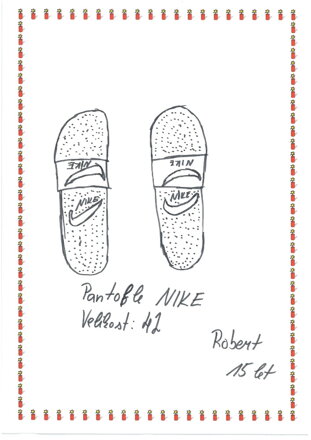 NIKE NIKE
NIKE NIKE
Pantofle NIKE
Velikost: 42
Robert
15 let